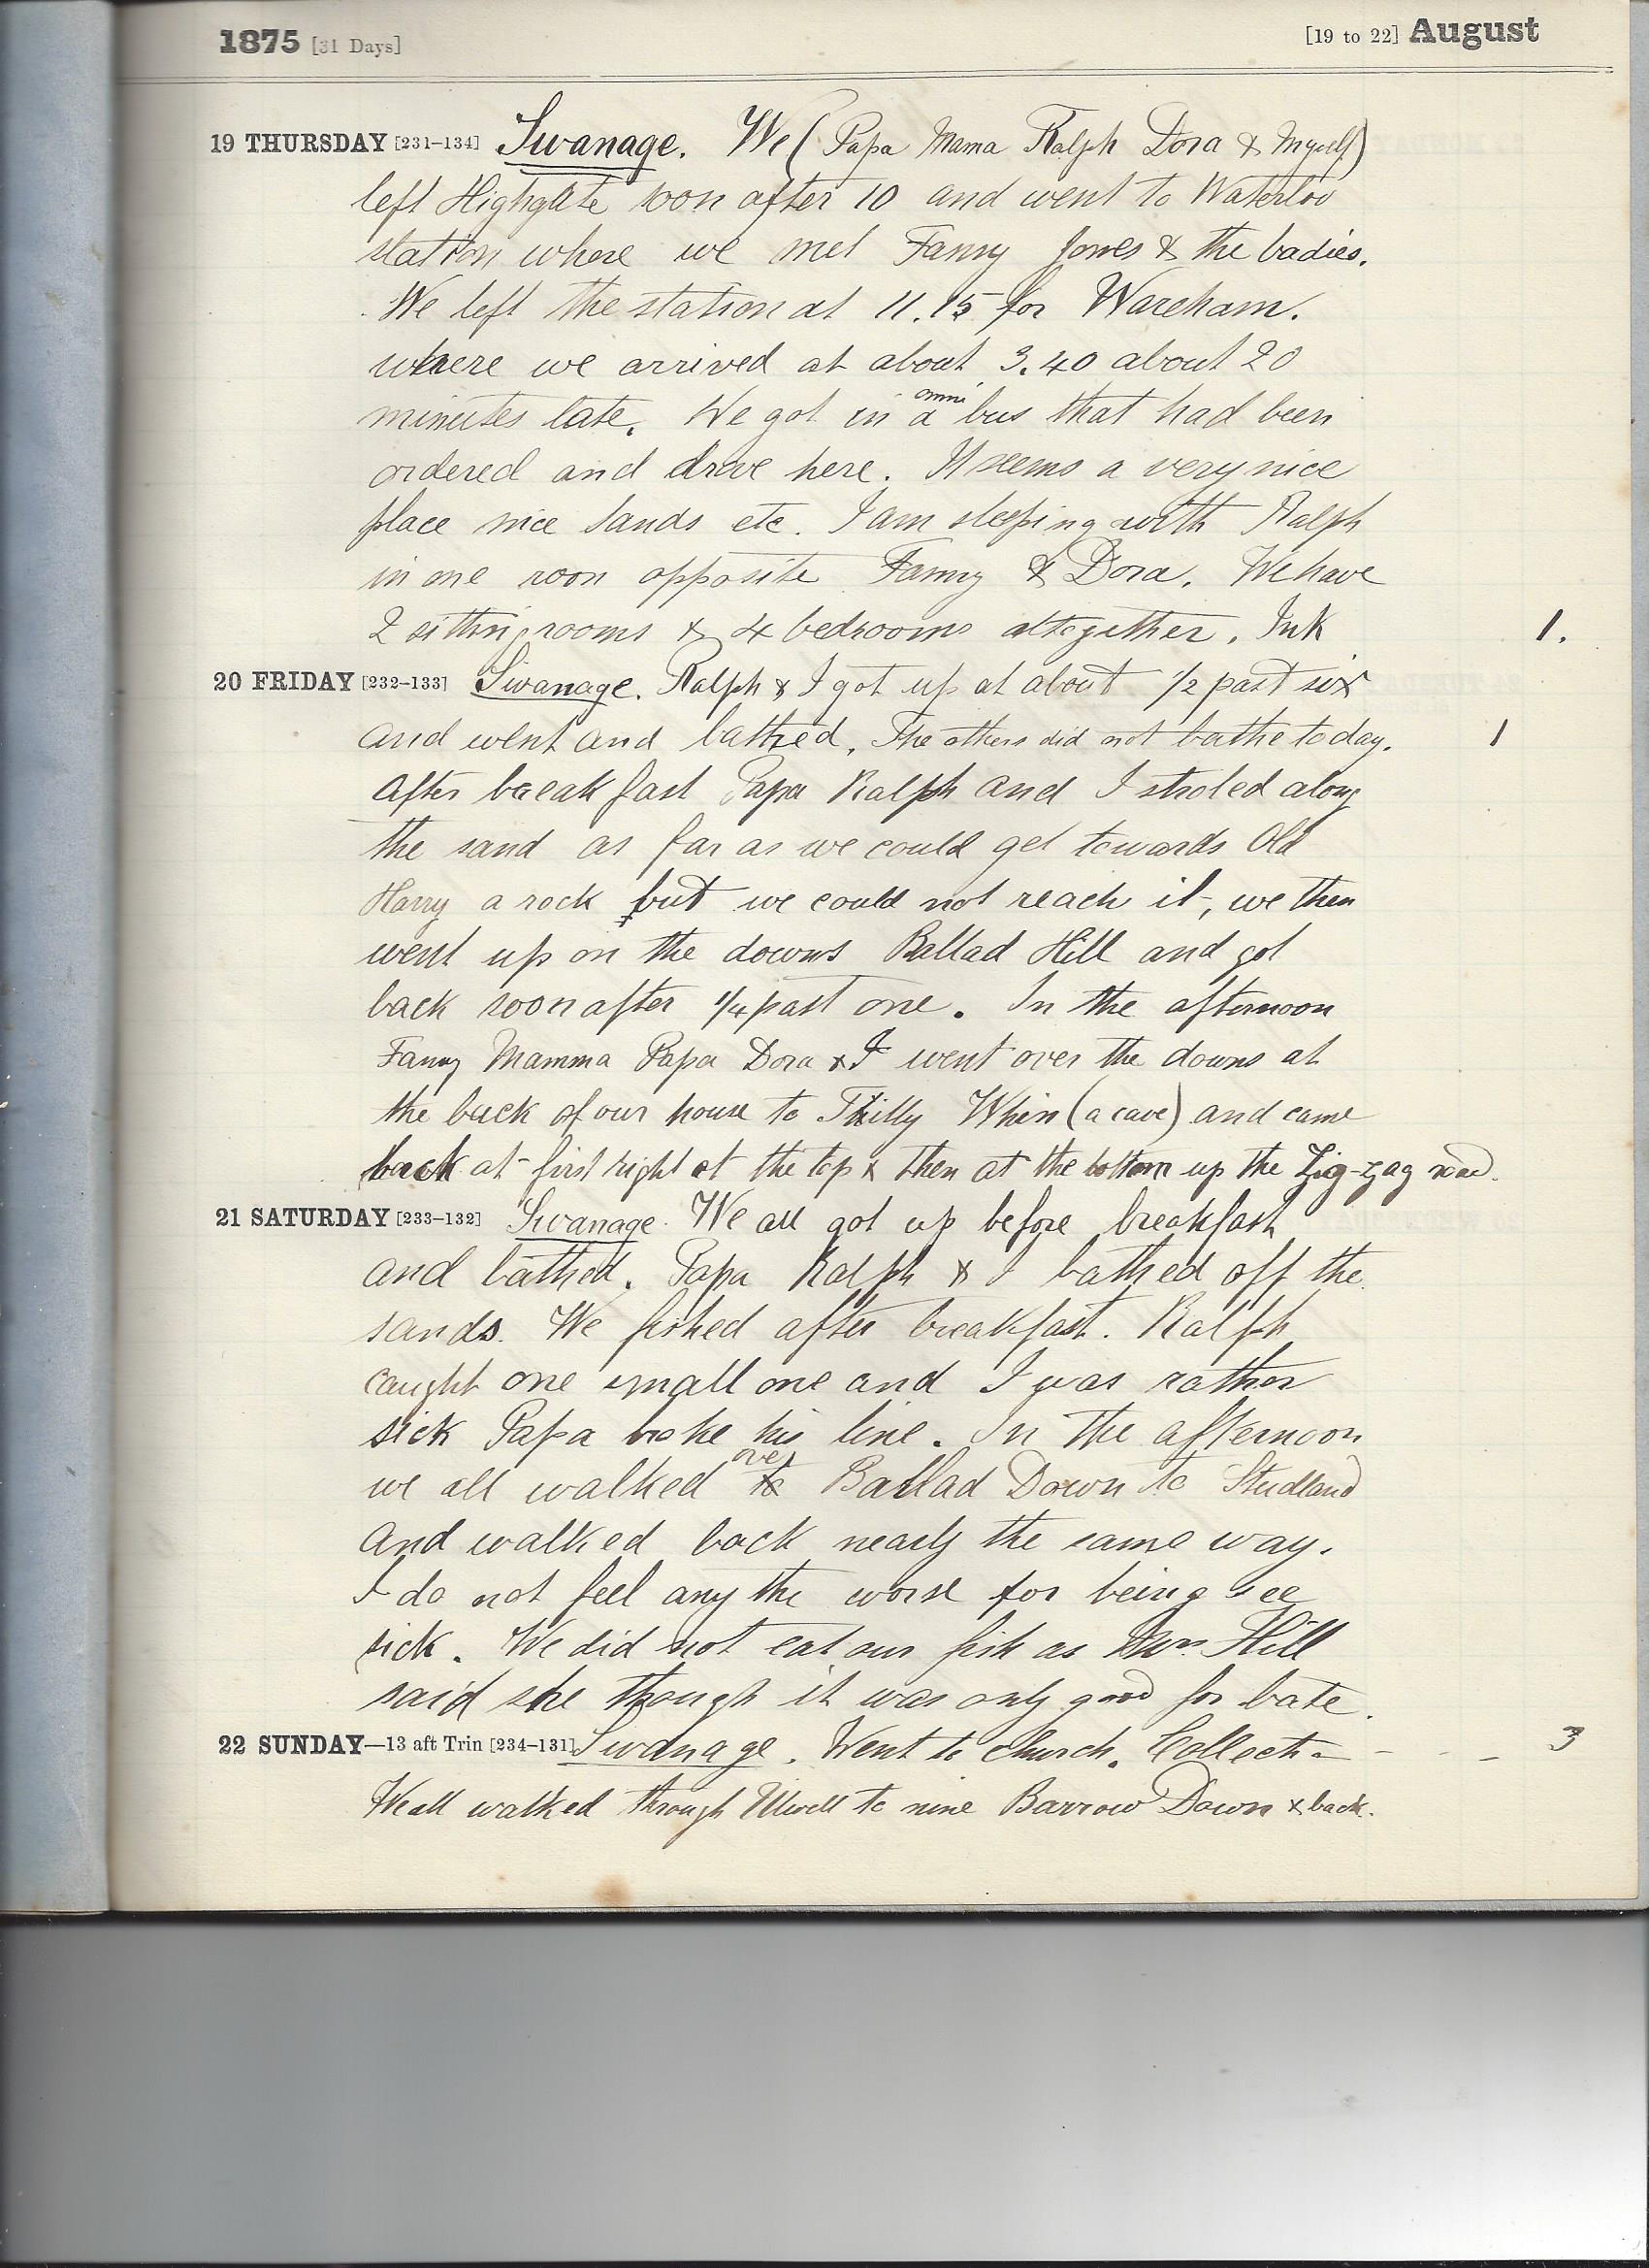 1875 [31 Days] [19 to 22] August
19 THURSDAY [231-134] Swanage. We (Papa Mama Ralph Dora & Myself)
left Highgate soon after 10 and went to Waterloo
station where we met Fanny Jones & the badies.
We left the station at 11.15 for Wareham.
where we arrived at about 3.40 about 20
omni
minutes late. We got in a bus that had been
ordered and drove here. It seems a very nice
place nice sands etc. I am sleeping with Ralph
in one room opposite Fanny & Dora. We have
2 sitting rooms & 4 bedrooms altogether. Ink 1.
20 FRIDAY [232-133] Swanage. Ralph & I got up at about 1/2 past six
and went and bathed. The others did not bathe today. 1
after breakfast Papa Ralph and I stroled along
the sand as far as we could get towards Old
Harry a rock but we could not reach it, we then
went up on the downs Ballad Hill and got
back soon after 1/4 past one. In the afternoon
Fanny Mamma Papa Dora & I went over the downs at
the back of our house to Tilly Whin (a cave) and came
back at first right at the top & then at the bottom up the Zig-zag road.
21 SATURDAY [233-132] Swanage. We all got up before breakfast
and bathed. Papa Ralph & I bathed off the
sands. We fished after breakfast. Ralph
caught one small one and I was rather
sick Papa broke his line. In the afternoon
over
we all walked to Ballad Down to Studland
and walked back nearly the same way.
I do not feel any the worse for being see
sick. We did not eat our fish as Mrs. Hill
said she though it was only good for bate.
22 SUNDAY—13 aft Trin [234-131] Swanage. Went to church. Collect - - - 3
We all walked through Ulwell to nine Barrow Down & back.